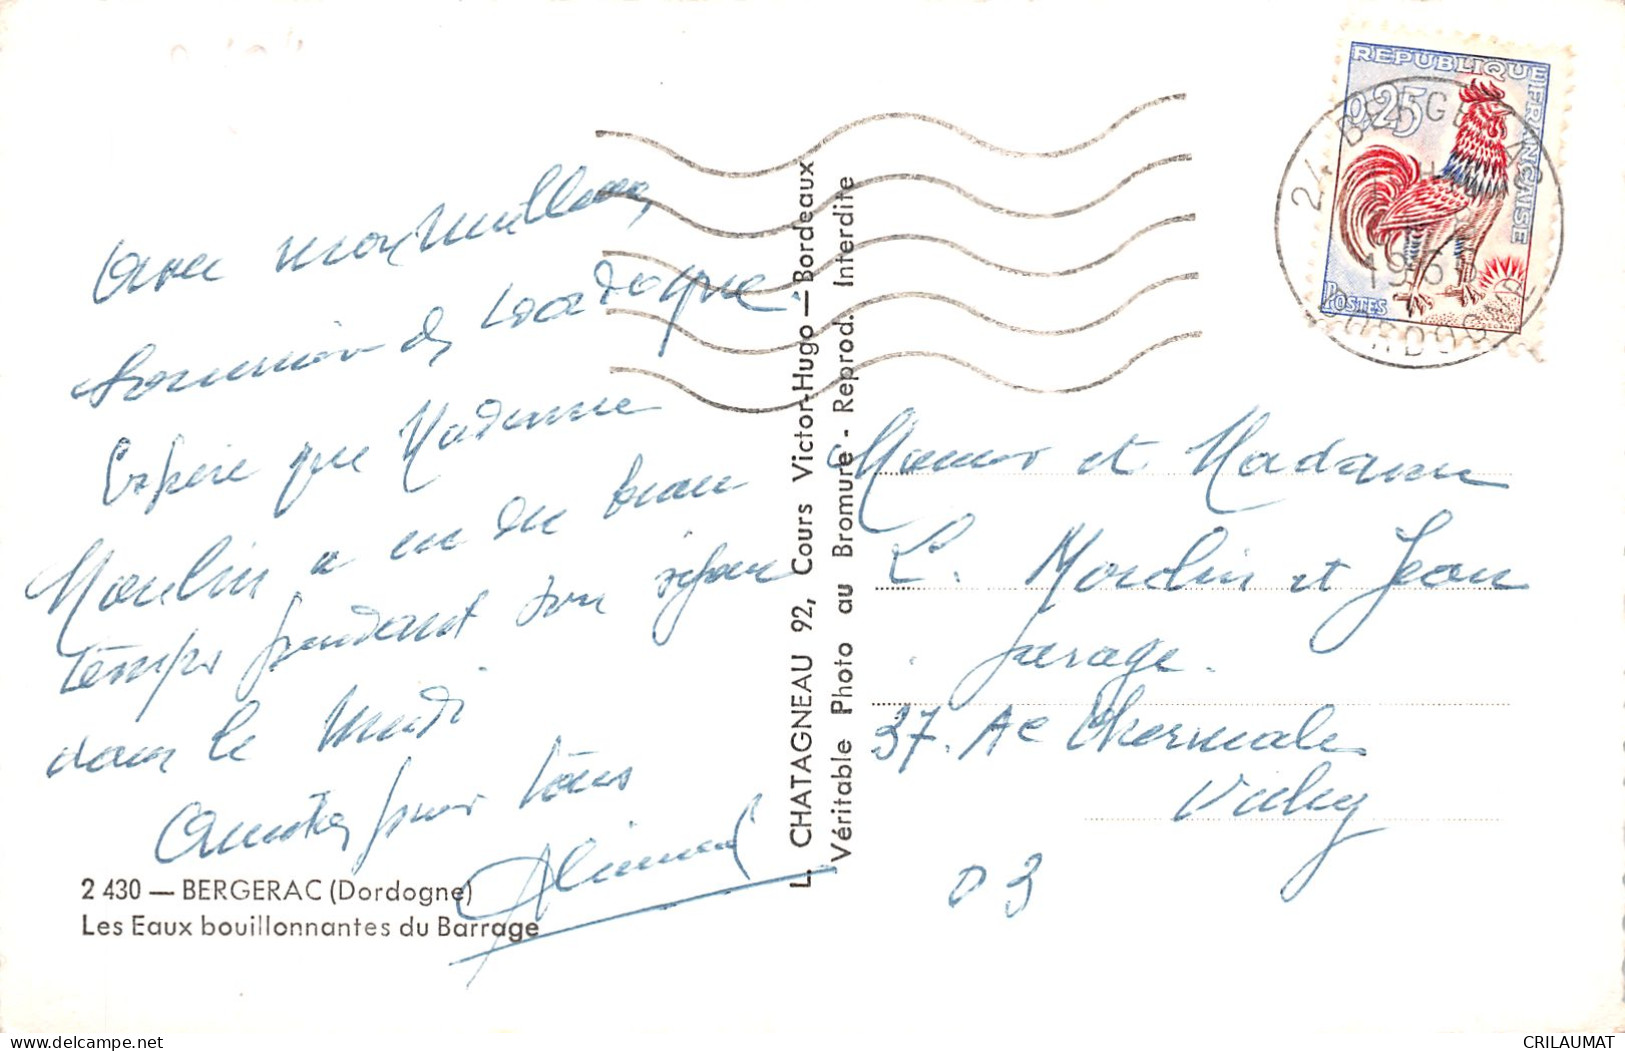 Avec mes meilleurs
souvenirs de Dordogne.
Espère que Madame
Moulin a eu du beau
temps pendant son séjour
dans le Midi
Amitiés pour tous
2 430 — BERGERAC (Dordogne)
Les Eaux bouillonnantes du Barrage
L. CHATAGNEAU 92, Cours Victor-Hugo — Bordeaux
Véritable Photo au Bromure - Reprod. Interdite
REPUBLIQUE FRANÇAISE
0,25
POSTES
24 BERGERAC
DORDOGNE
Monsieur et Madame
L. Moulin et Jean
garage.
37. Ae Thermale
Vichy
03
CRILAUMAT